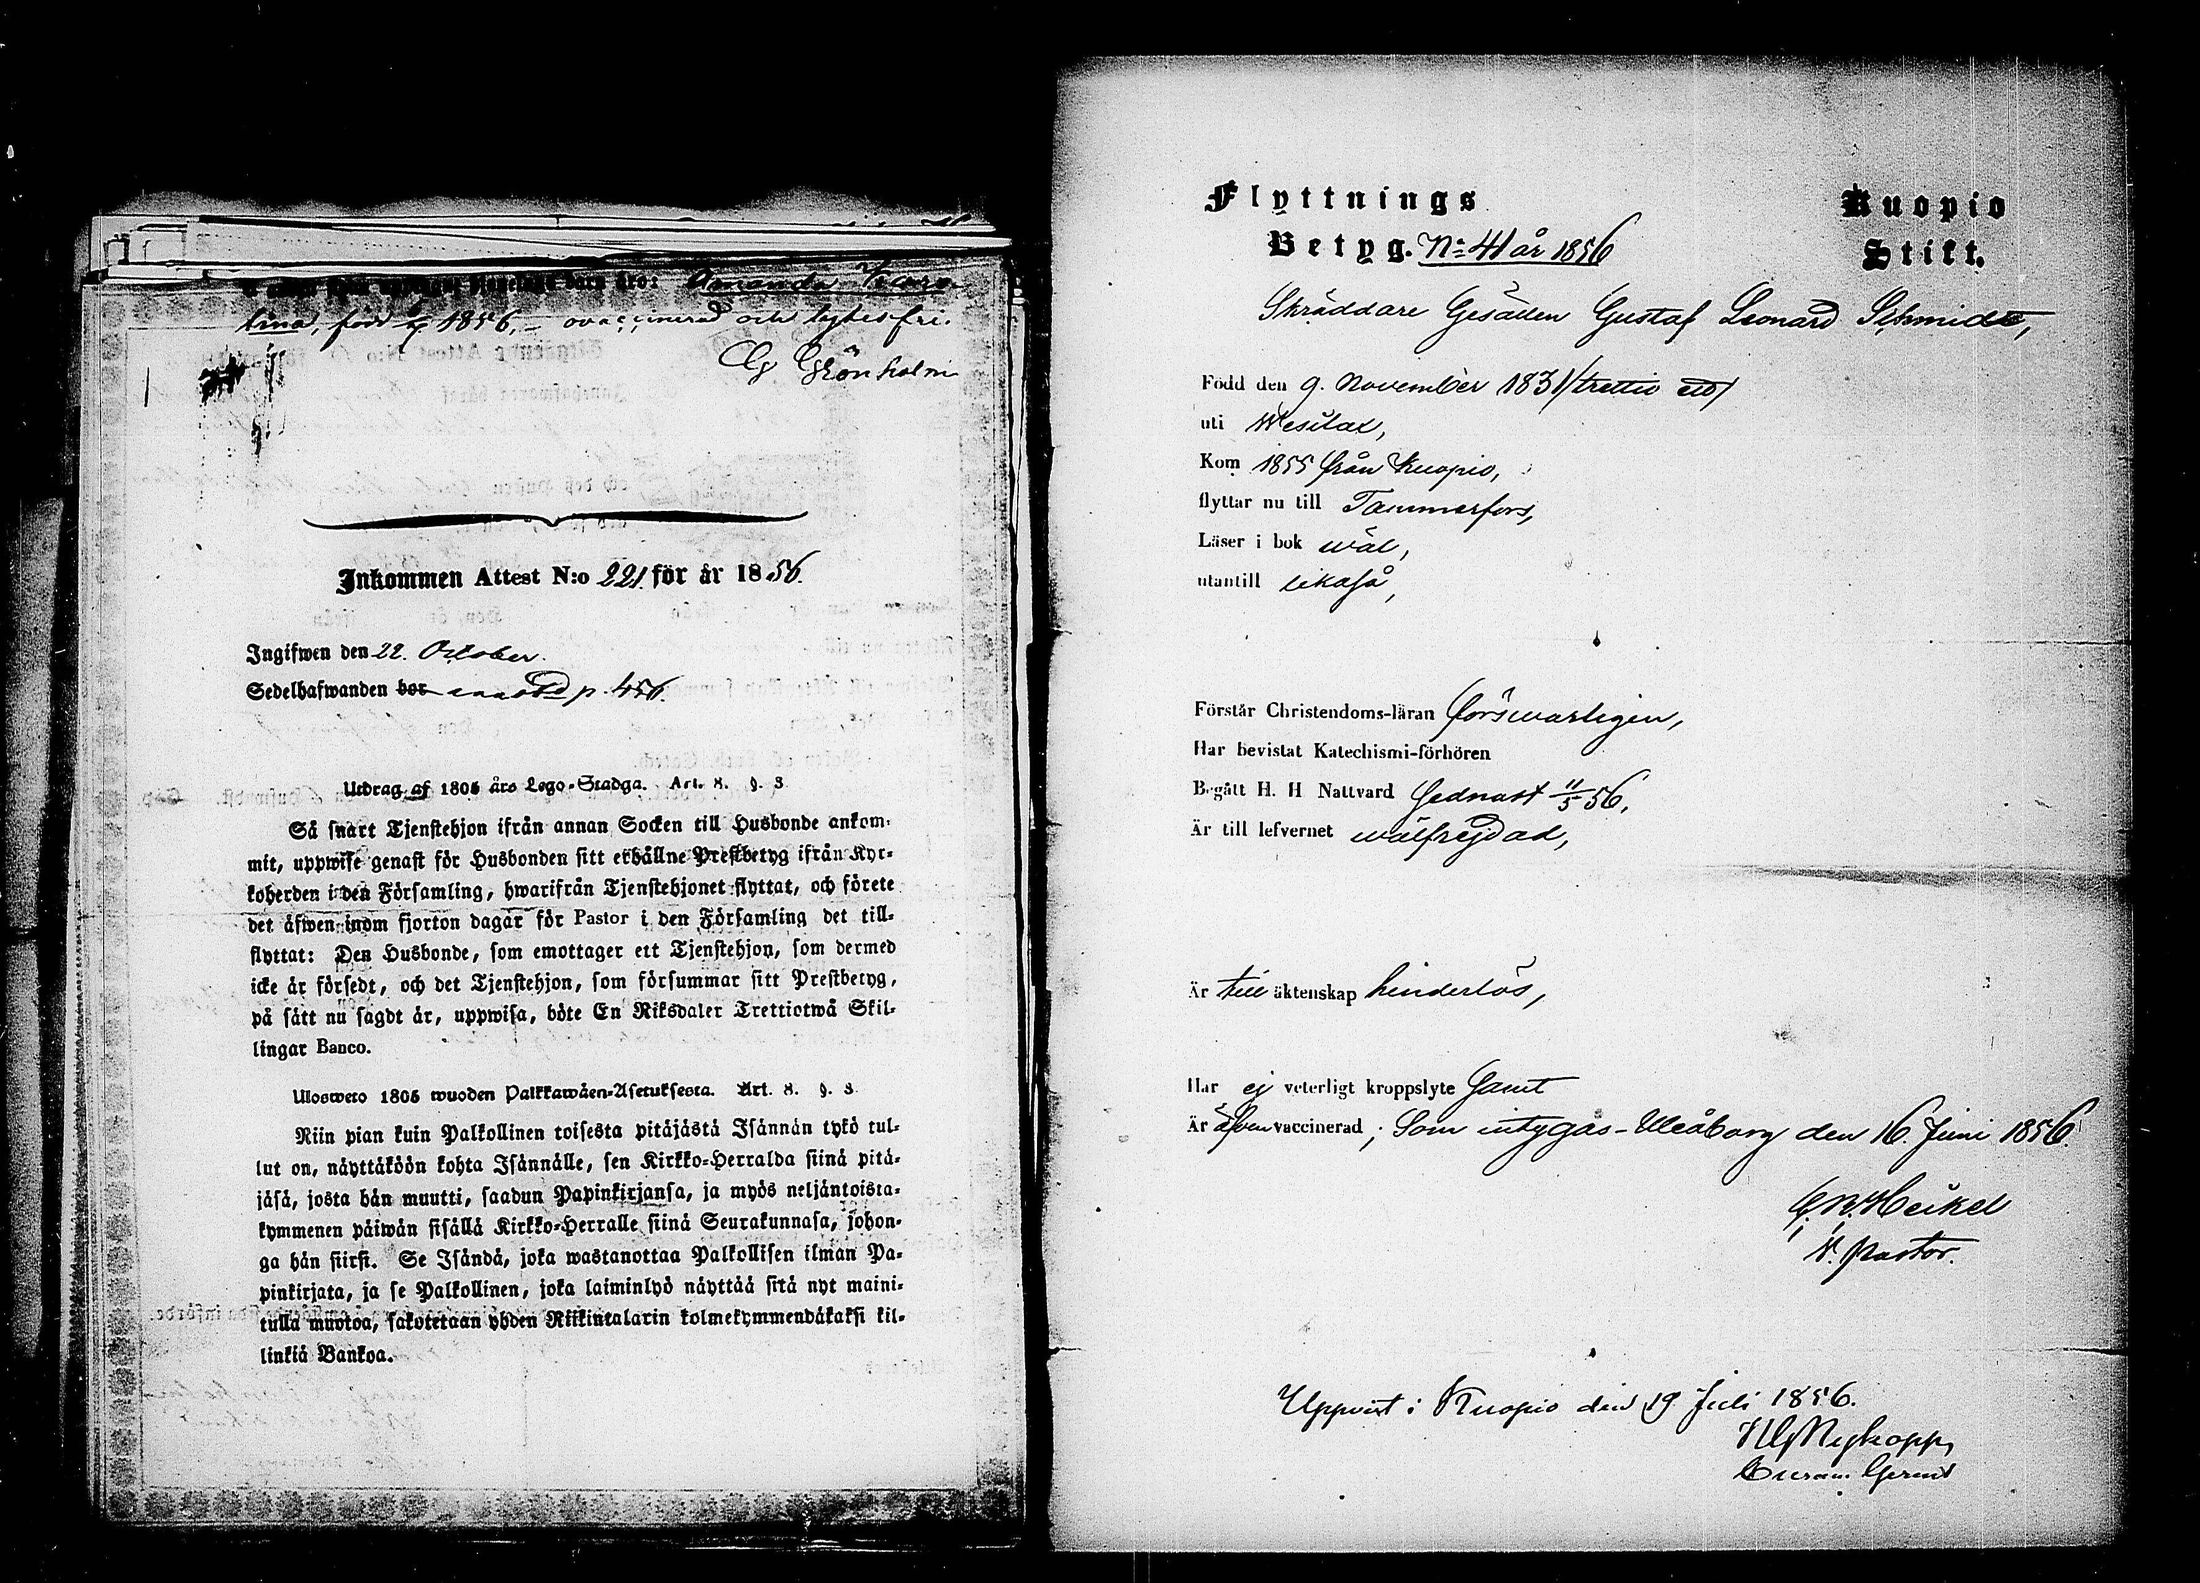 barn äro: Amanda Karo-
lina, född 1856, ovaccinerad och lytesfri.
Cg Grönholm
Inkommen Attest N:o 221. för år 1856.
Ingifwen den 22. October.
Sedelhafwanden bor p. 456.
Utdrag af 1805 års Lego-Stadga. Art. 8. §. 3
Så snart Tjenstehjon ifrån annan Socken till Husbonde ankom-
mit, uppwise genast för Husbonden sitt erhållne Prestbetyg ifrån Kyr-
koherden i den Församling, hwarifrån Tjenstehjonet flyttat, och förete
det äfwen inom fjorton dagar för Pastor i den Församling det till-
flyttat: Den Husbonde, som emottager ett Tjenstehjon, som dermed
icke är försedt, och det Tjenstehjon, som försummar sitt Prestbetyg,
på sätt nu sagdt är, uppwisa, böte En Riksdaler Trettiotwå Skil-
lingar Banco.
Ulosweto 1805 wuoden Palkkawäen-Asetuksesta. Art. 8. §. 3
Niin pian kuin Palkollinen toisesta pitäjästä Isännän tykö tul-
lut on, näyttäköön kohta Isännälle, sen Kirkko-Herralda siinä pitä-
jäsä, josta hän muutti, saadun Papinkirjansa, ja myös neljäntoista-
kymmenen päiwän sisällä Kirkko-Herralle siinä Seurakunnasa, johon-
ga hän siirsi. Se Isändä, joka wastanottaa Palkollisen ilman Pa-
pinkirjata, ja se Palkollinen, joka laiminlyö näyttää sitä nyt maini-
tulla muotoa, sakotetaan yhden Riikintalarin kolmekymmendäkaksi kil-
linkiä Bankoa.
Flyttnings
Betyg. No 41 år 1856
Kuopio
Stift.
Skräddare Gesällen Gustaf Leonard Schmidt,
Född den 9. November 1831/trettio ett/
uti Wesilax,
Kom 1855 från Kuopio,
flyttar nu till Tammerfors,
Läser i bok wäl,
utantill likaså,
Förstår Christendoms-läran försvarligen,
Har bevistat Katechismi-förhören
Begått H. H Nattvard sednast 11/5 56,
Är till lefvernet wälfrejdad,
Är till äktenskap hinderlös,
Har ej veterligt kroppslyte samt
Är äfven vaccinerad; Som intygas - Uleåborg den 16. Juni 1856.
C. N. Heikel
V. Pastor.
Uppvist i Kuopio den 19 Juli 1856.
HGNykopp,